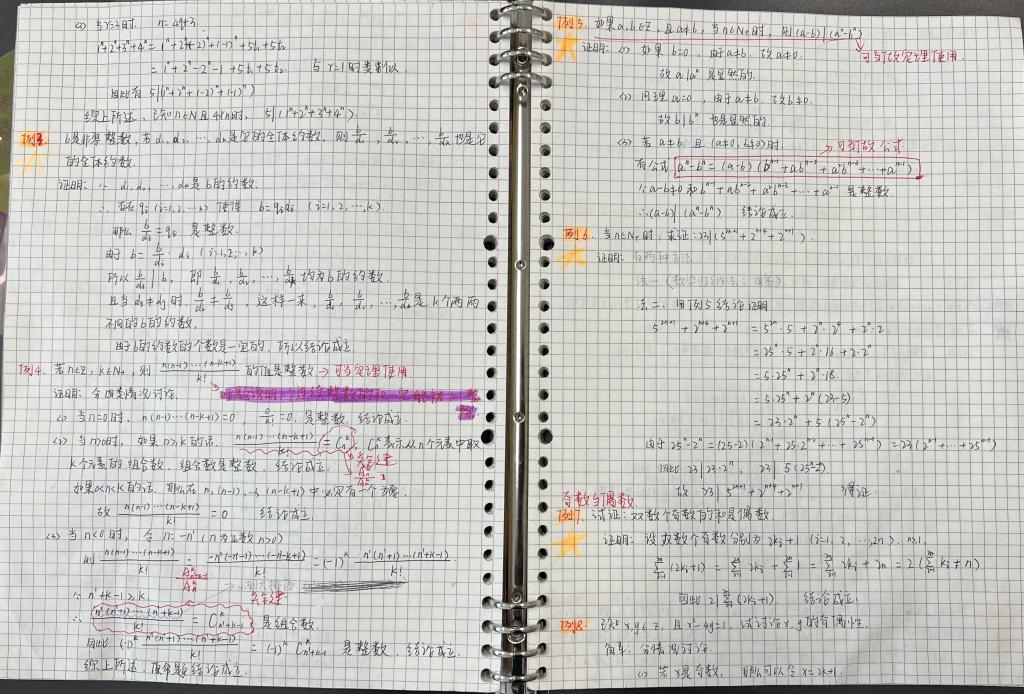 (4) 当 r=3时, n=4q+3.
1ⁿ+2ⁿ+3ⁿ+4ⁿ = 1ⁿ+2ⁿ+(-2)ⁿ+(-1)ⁿ+5t₁+5t₂
= 1ⁿ+2ⁿ-2ⁿ-1+5t₁+5t₂ 与 r=1时类似.
因此有 5|(1ⁿ+2ⁿ+(-2)ⁿ+(-1)ⁿ)
综上所述, 已知n∈N且4∤n时, 5|(1ⁿ+2ⁿ+3ⁿ+4ⁿ).
例3. b是非零整数, 若d₁, d₂, …, dₖ是它的全体约数, 则 b/d₁, b/d₂, …, b/dₖ 也是它
的全体约数.
证明: ∵ d₁, d₂, …, dₖ是b的约数.
∴ 存在 qᵢ (i=1,2,…k) 使得 b=qᵢdᵢ (i=1,2,…,k).
那么 b/dᵢ = qᵢ 是整数.
由于 b = b/dᵢ · dᵢ (i=1,2,…,k)
所以 b/dᵢ | b, 即 b/d₁, b/d₂, …, b/dₖ 均为b的约数.
且当 dᵢ≠dⱼ时, b/dᵢ ≠ b/dⱼ, 这样一来, b/d₁, b/d₂, …, b/dₖ是k个两两
不同的b的约数.
由于b的约数的个数是一定的, 所以结论成立.
例4. 若n∈Z, k∈N₊, 则 n(n-1)…(n-k+1)/k! 的值是整数 → 可当定理使用
证明: 分四类情况讨论.
(1) 当n=0时, n(n-1)…(n-k+1)=0, 0/k!=0, 是整数, 结论成立.
(2) 当n>0时, 如果n≥k的话. n(n-1)…(n-k+1)/k! = Cₙᵏ, Cₙᵏ表示从n个元素中取
关键
k个元素的组合数, 组合数是整数, 结论成立.
如果0<n<k的话, 那么在 n, (n-1), …, (n-k+1) 中必有一个为零.
故 n(n-1)…(n-k+1)/k! = 0 结论成立.
(3) 当n<0时, 令 n=-n' (n'为正数 n'>0)
则 n(n-1)…(n-k+1)/k! = -n'(-n'-1)…(-n'-k+1)/k! = (-1)ᵏ n'(n'+1)…(n'+k-1)/k!
∵ n'+k-1≥k
关键
∴ n'(n'+1)…(n'+k-1)/k! = Cₙ'₊ₖ₋₁ᵏ 是组合数.
因此 (-1)ᵏ n'(n'+1)…(n'+k-1)/k! = (-1)ᵏ Cₙ'₊ₖ₋₁ᵏ 是整数, 结论成立.
综上所述, 原命题结论成立.
例5. 如果a,b∈Z, 且a≠b, 当n∈N₊时, 则(a-b)|(aⁿ-bⁿ)
→ 可当做定理使用
证明: (1) 如果 b=0, 由于a≠b, 故a≠0.
故a|aⁿ是显然的.
(2) 同理a=0, 由于a≠b, 故b≠0.
故b|bⁿ也是显然的.
(3) 若a≠b 且 (a≠0, b≠0)时. → 可当做公式
有公式 aⁿ-bⁿ=(a-b)(bⁿ⁻¹+abⁿ⁻²+a²bⁿ⁻³+…+aⁿ⁻¹)
∵ a-b≠0和bⁿ⁻¹+abⁿ⁻²+a²bⁿ⁻³+…+aⁿ⁻¹是整数
∴ (a-b)|(aⁿ-bⁿ) 结论成立.
例6. 当n∈N₊时, 求证: 23|(5²ⁿ⁺¹+2ⁿ⁺⁴+2ⁿ⁺¹).
证明: 有两种方法.
法一 (数学归纳法: 略)
法二, 用例5结论证明
5²ⁿ⁺¹+2ⁿ⁺⁴+2ⁿ⁺¹ = 5²ⁿ·5+2ⁿ·2⁴+2ⁿ·2
=25ⁿ·5+2ⁿ·16+2·2ⁿ
=5·25ⁿ+2ⁿ·18.
=5·25ⁿ+2ⁿ(23-5)
=23·2ⁿ+5(25ⁿ-2ⁿ)
由于25ⁿ-2ⁿ=(25-2)(2ⁿ⁻¹+25·2ⁿ⁻²+…+25ⁿ⁻¹)=23(2ⁿ⁻¹+…+25ⁿ⁻¹)
因此 23|23·2ⁿ, 23|5(25ⁿ-2ⁿ)
故 23|5²ⁿ⁺¹+2ⁿ⁺⁴+2ⁿ⁺¹ 得证.
奇数与偶数.
例7. 试证: 双数个奇数的和是偶数.
证明: 设双数个奇数分别为 2kᵢ+1 (i=1, 2, …,2n). n≥1.
∑(2kᵢ+1) = ∑2kᵢ+∑1 = ∑2kᵢ+2n = 2(∑kᵢ+n)
因此 2|∑(2kᵢ+1) 结论成立.
例8. 设x,y∈Z, 且x²-4y=1, 试讨论x,y的奇偶性.
解: 分情况讨论.
(1) 若x是奇数, 那么可以令x=2k+1.